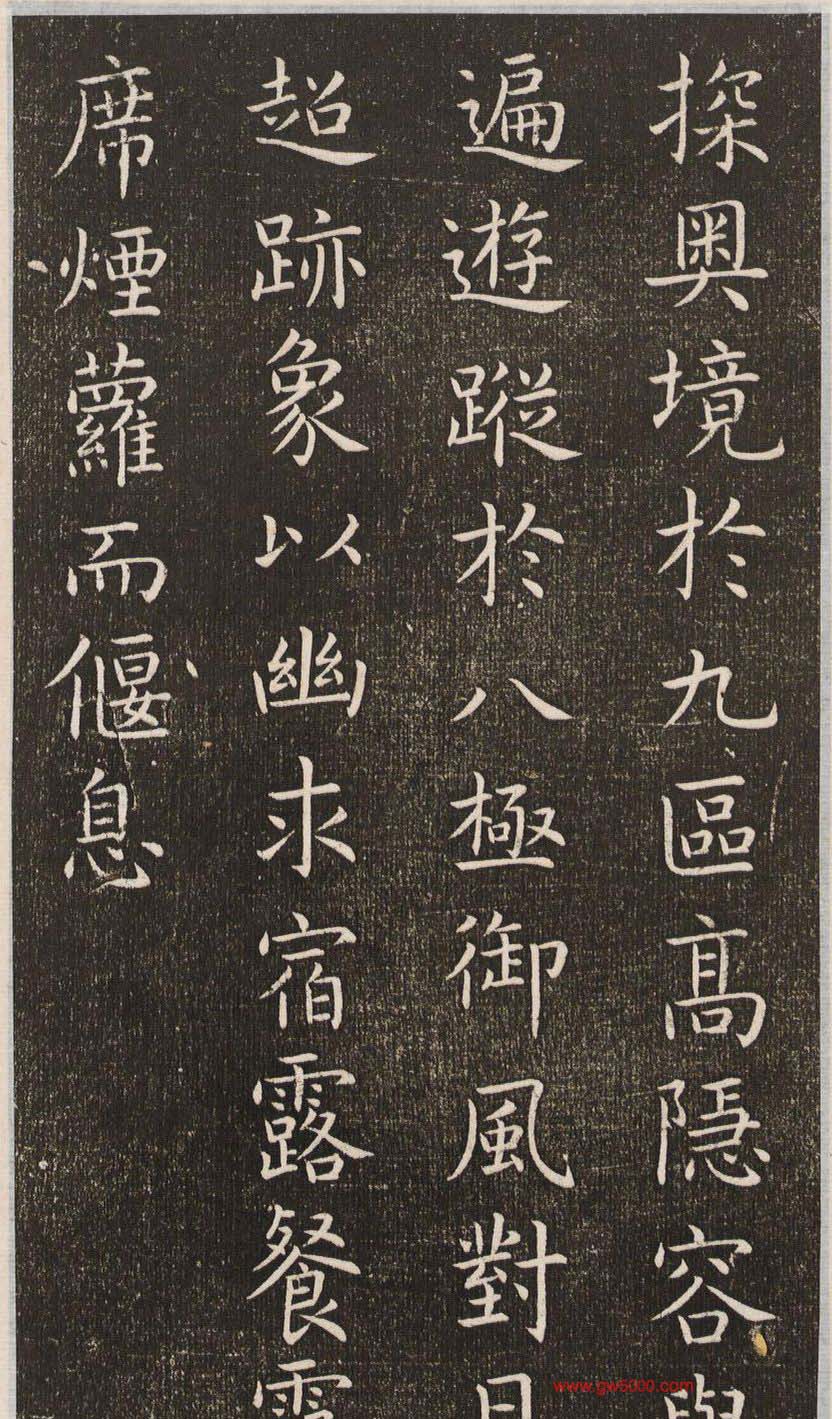 探奥境於九區高隱容與
遍遊蹤於八極御風對月
超跡象以幽求宿露餐霞
席煙蘿而偃息
www.gw5000.com